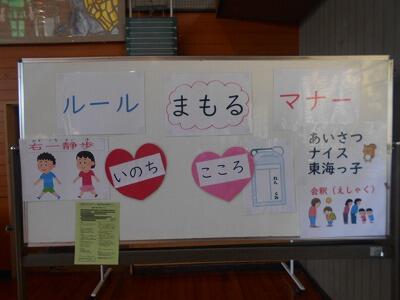 ルール
まもる
マナー
右一静歩
いのち
こころ
あいさつ
ナイス
東海っ子
会釈（えしゃく）